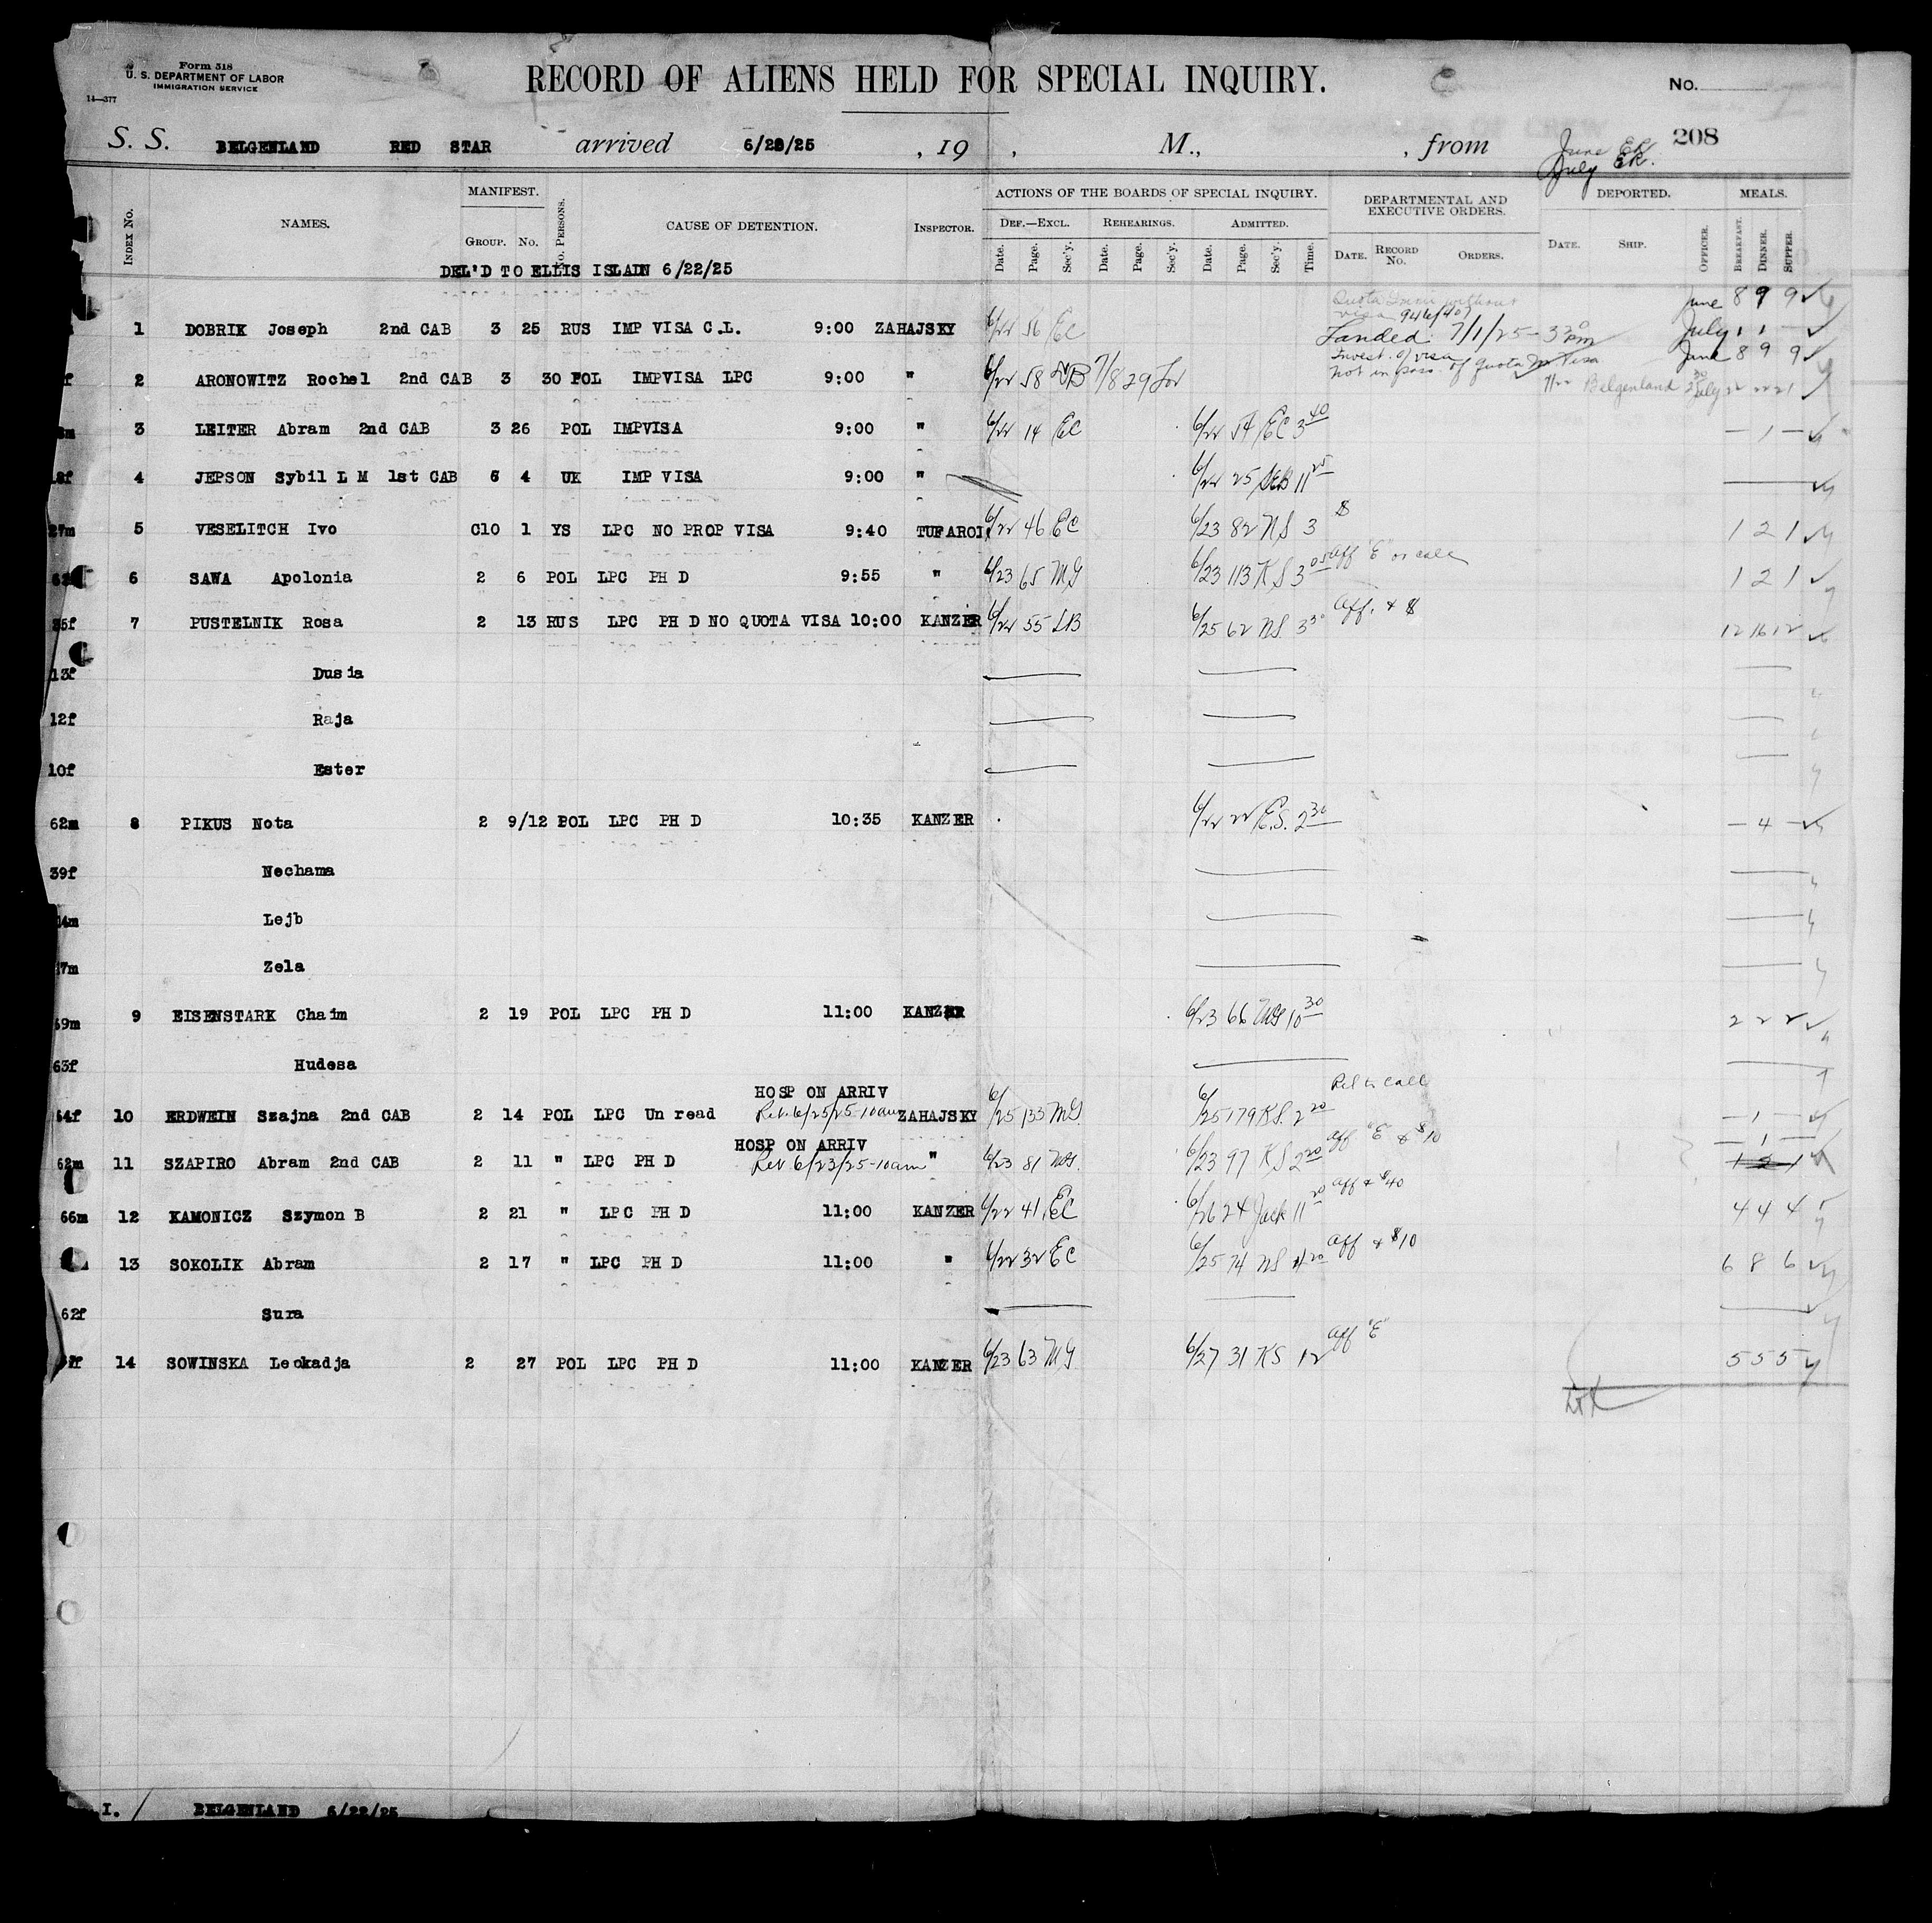 Form 518
U. S. DEPARTMENT OF LABOR
IMMIGRATION SERVICE
14—377
RECORD OF ALIENS HELD FOR SPECIAL INQUIRY.
No.
208
S. S. BELGENLAND RED STAR arrived 6/22/25, 19 , M., , from
June EK
July EK.
Index No. NAMES. MANIFEST. Group. No. No. Persons. CAUSE OF DETENTION. Inspector. ACTIONS OF THE BOARDS OF SPECIAL INQUIRY. Def.—Excl. Date. Page. Sec'y. Rehearings. Date. Page. Sec'y. Admitted. Date. Page. Sec'y. Time. DEPARTMENTAL AND EXECUTIVE ORDERS. Date. Record No. Orders. DEPORTED. Date. Ship. Officer. MEALS. Breakfast. Dinner. Supper.
DEL'D TO ELLIS ISLADN 6/22/25
1 DOBRIK Joseph 2nd CAB 3 25 RUS IMP VISA C.L. 9:00 ZAHAJSKY 6/24 56 EC visa 946/407 Landed 7/1/25 - 3 30 pm June 8 9 9 July 1 1 —
2 ARONOWITZ Rochel 2nd CAB 3 30 POL IMPVISA LPC 9:00 " 6/24 58 7/8 29 not in poss. of quota visa Belgenland June 8 9 9 July 22 22 21
3 LEITER Abram 2nd CAB 3 26 POL IMPVISA 9:00 " 6/24 14 EC 6/24 54 EC 3 40 — 1 —
4 JEPSON Sybil L M 1st CAB 6 4 UK IMP VISA 9:00 " 6/24 25 11 25
27m 5 VESELITCH Ivo C10 1 YS LPC NO PROP VISA 9:40 TUFAROI 6/22 46 EC 6/23 82 NS 3 $ 1 2 1
6 SAWA Apolonia 2 6 POL LPC PH D 9:55 " 6/23 65 MG 6/23 113 KS 3 05 Aff "E" or call 1 2 1
35f 7 PUSTELNIK Rosa 2 13 RUS LPC PH D NO QUOTA VISA 10:00 KANZER 6/24 55 LB 6/25 62 NS 3 30 Aff. + $ 12 16 12
13f Dusia
12f Raja
10f Ester
62m 8 PIKUS Nota 2 9/12 POL LPC PH D 10:35 KANZER 6/22 22 E.S. 2 30 — 4 —
39f Nechama
14m Lejb
17m Zela
69m 9 EISENSTARK Chaim 2 19 POL LPC PH D 11:00 KANZER 6/23 66 MG 10 30 2 2 2
63f Hudesa
HOSP ON ARRIV
64f 10 ERDWEIN Szajna 2nd CAB 2 14 POL LPC Un read Rel. 6/25/25-10am ZAHAJSKY 6/25 133 MG 6/25 179 KS. 2 20 Rel to call — 1 —
HOSP ON ARRIV
62m 11 SZAPIRO Abram 2nd CAB 2 11 " LPC PH D Rel 6/23/25-10am " 6/23 81 MG. 6/23 97 KS 2 20 Aff "E" & $10 — 1 — 1 2 1
66m 12 KAMONICZ Szymon B 2 21 " LPC PH D 11:00 KANZER 6/22 41 EC 6/26 24 Jack 11 20 Aff & $40 4 4 4
13 SOKOLIK Abram 2 17 " LPC PH D 11:00 " 6/22 32 EC 6/25 74 NS 4 20 Aff & $10 6 8 6
62f Sura
14 SOWINSKA Leokadja 2 27 POL LPC PH D 11:00 KANZER 6/23 63 MG 6/27 31 KS 12 Aff "E" 5 5 5
I. / BELGENLAND 6/22/25